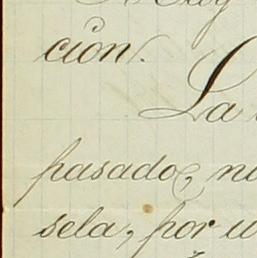 ción.
La
pasado, n
sela, por u